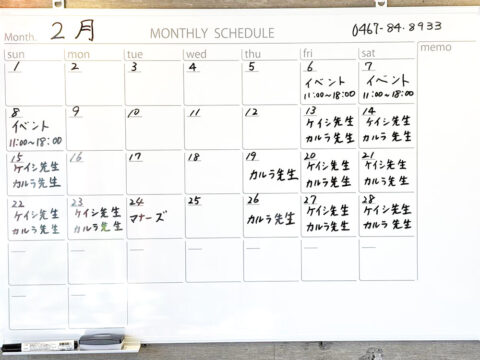 Month. 2月 MONTHLY SCHEDULE 0467-84-8933
sun mon tue wed thu fri sat memo
1 2 3 4 5 6 7
イベント イベント
11:00~18:00 11:00~18:00
8 9 10 11 12 13 14
イベント ケイシ先生 ケイシ先生
11:00~18:00 カルラ先生 カルラ先生
15 16 17 18 19 20 21
ケイシ先生 カルラ先生 ケイシ先生 ケイシ先生
カルラ先生 カルラ先生 カルラ先生
22 23 24 25 26 27 28
ケイシ先生 ケイシ先生 マナーズ カルラ先生 ケイシ先生 ケイシ先生
カルラ先生 カルラ先生 カルラ先生 カルラ先生